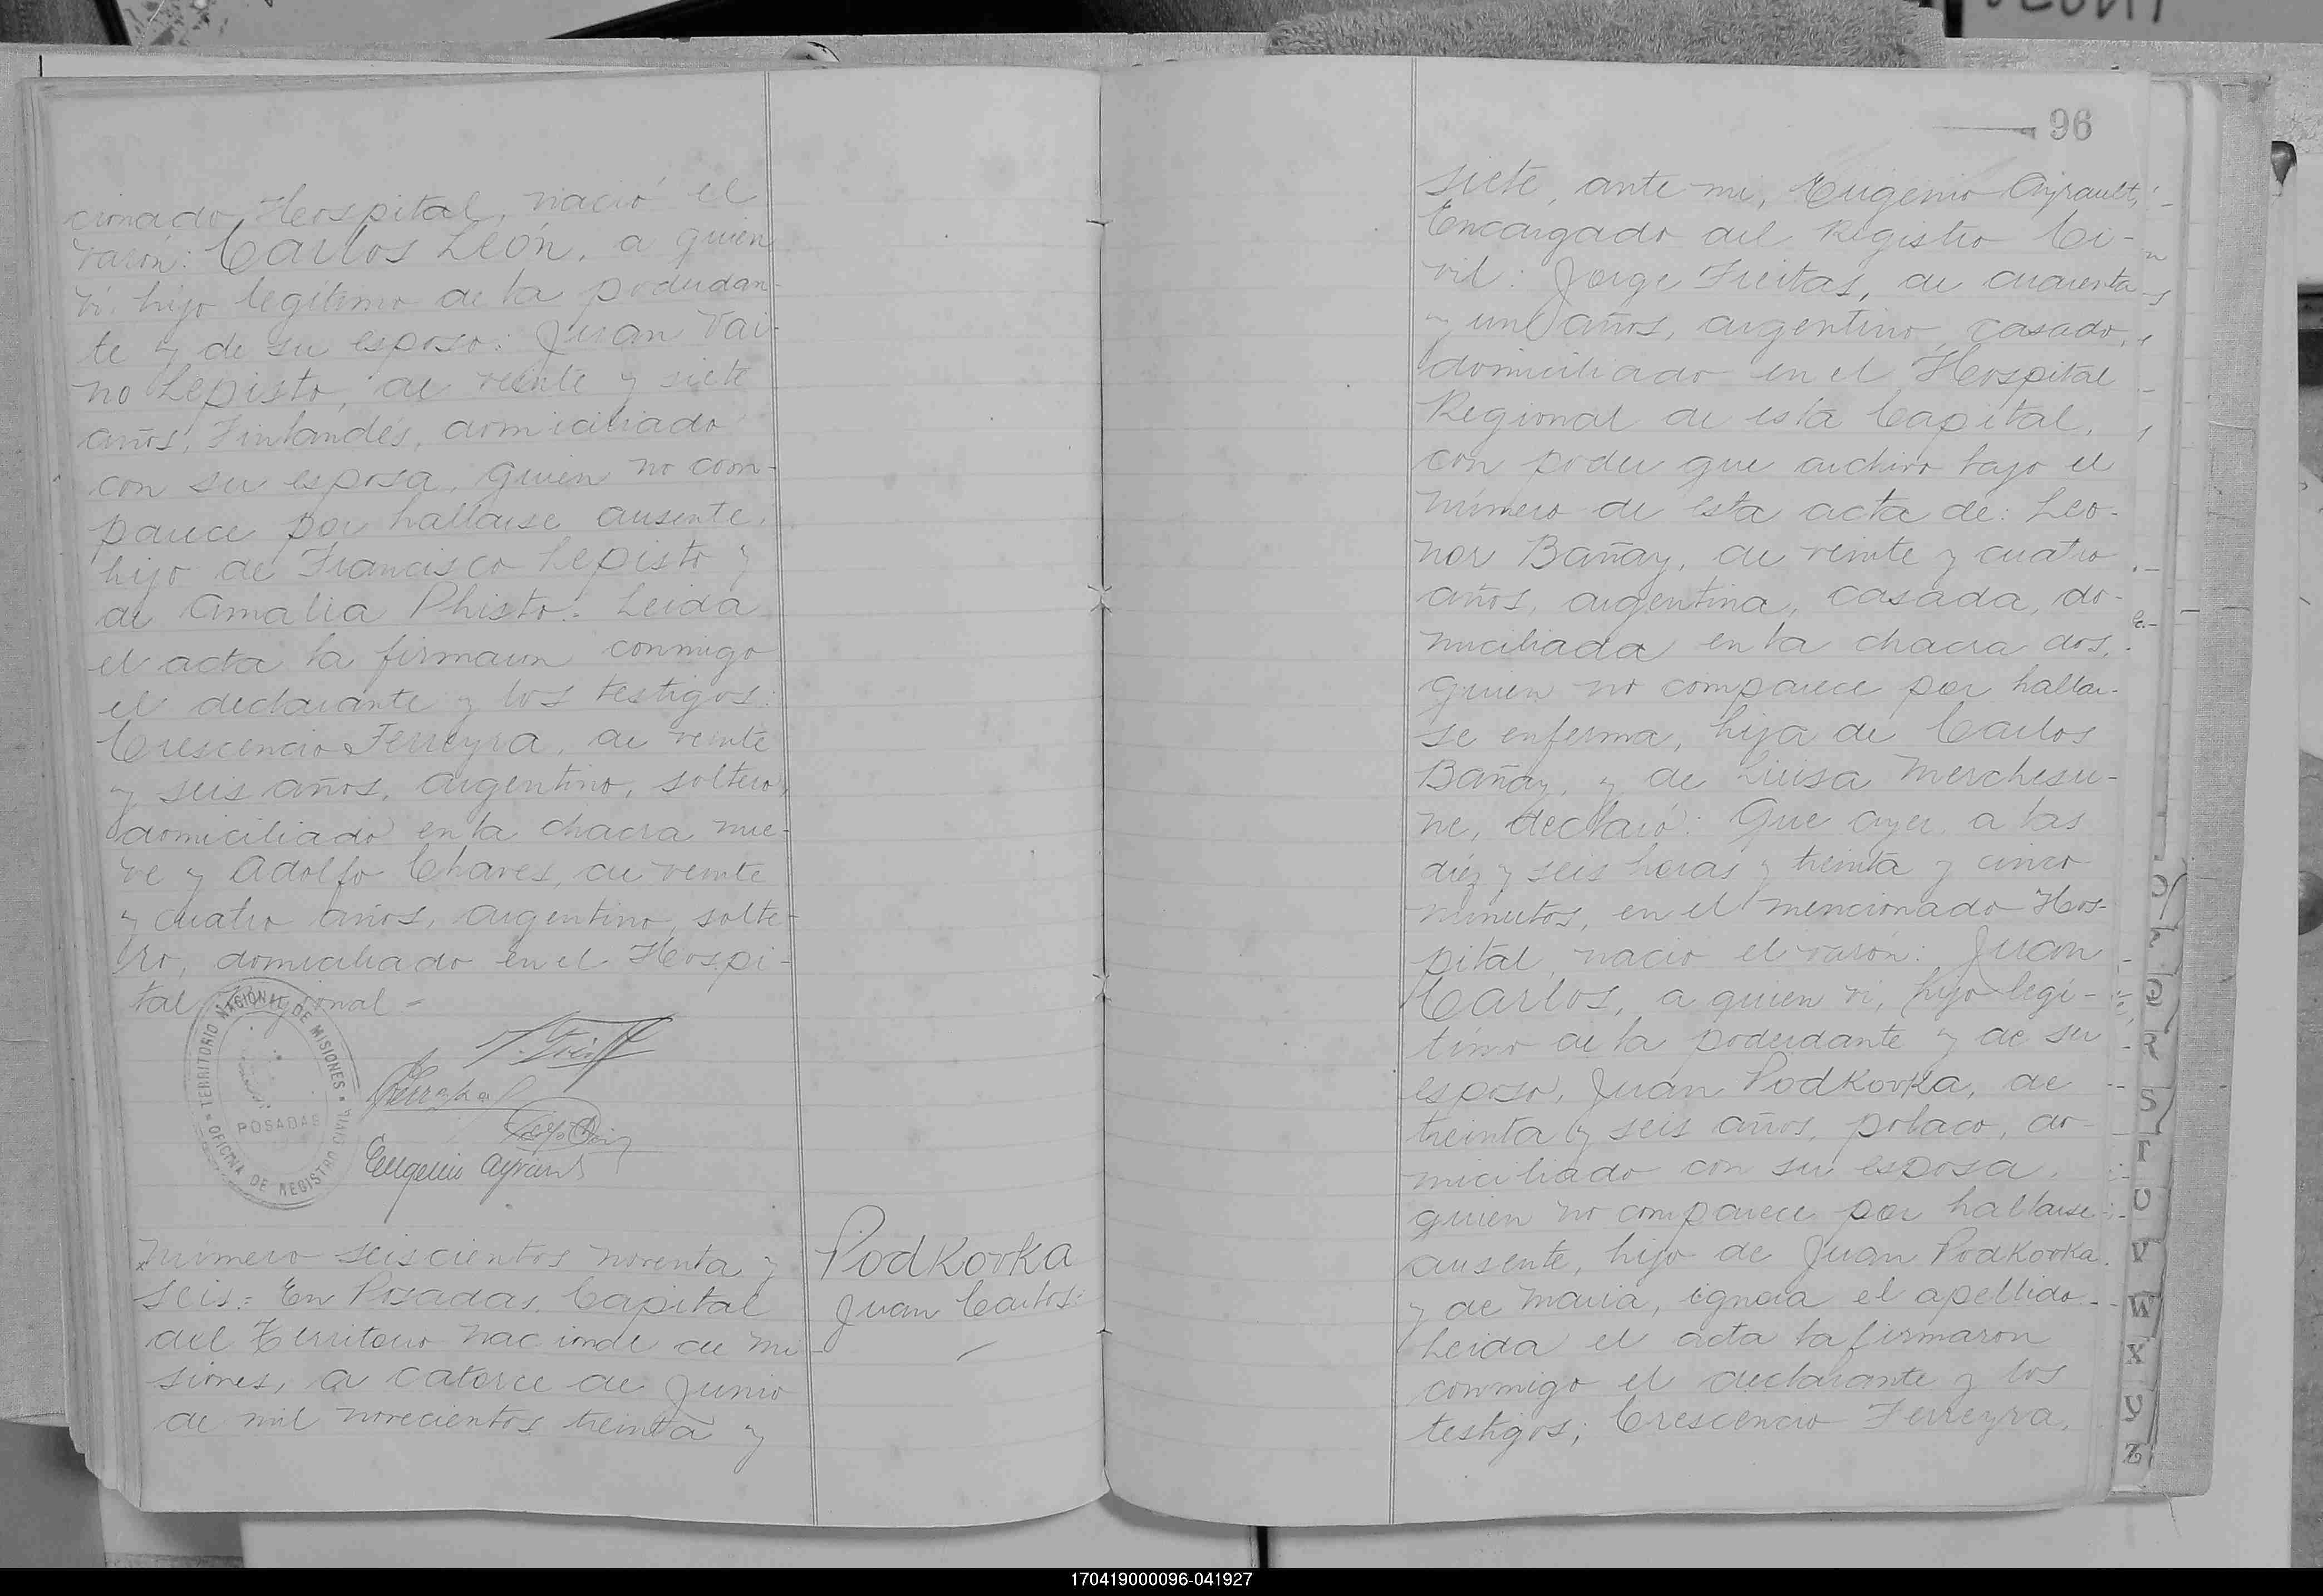 cionado Hospital, nació el
varón: Carlos León, a quien
vi, hijo legítimo de la poderdan-
te y de su esposo: Juan Vai-
no Lepisto, de veinte y siete
años, Finlandés, domiciliado
con su esposa, quien no com-
parece por hallarse ausente,
hijo de Francisco Lepisto y
de Amalia Phisto.- Leida
el acta la firmaron conmigo
el declarante y los testigos:
Crescencio Ferreyra, de veinte
y seis años, argentino, soltero,
domiciliado en la chacra nue-
ve y Adolfo Chaves, de veinte
y cuatro años, argentino, solte-
ro, domiciliado en el Hospi-
tal Regional -
TERRITORIO NACIONAL DE MISIONES
POSADAS
OFICINA DE REGISTRO CIVIL
Eugenio Ayrault
Número seiscientos noventa y
seis: En Posadas, Capital
del Territorio Nacional de Mi-
siones, a catorce de Junio
de mil novecientos treinta y
Podkovka
Juan Carlos:
96
siete, ante mi, Eugenio Ayrault,
Encargado del Registro Ci-
vil: Jorge Freitas, de cuarenta
y un años, argentino, casado,
domiciliado en el Hospital
Regional de esta Capital,
con poder que archivo bajo el
número de esta acta de: Leo-
nor Bañay, de veinte y cuatro
años, argentina, casada, do-
miciliada en la chacra dos,
quien no comparece por hallar-
se enferma, hija de Carlos
Bañay, y de Luisa Merchesu-
ne, declaró: Que ayer a las
diez y seis horas y treinta y cinco
minutos, en el mencionado Hos-
pital, nació el varón: Juan
Carlos, a quien vi, hijo legi-
timo de la poderdante y de su
esposo, Juan Podkovka, de
treinta y seis años, polaco, do-
miciliado con su esposa,
quien no comparece por hallarse
ausente, hijo de Juan Podkovka
y de Maria, ignora el apellido.-
Leida el acta la firmaron
conmigo el declarante y los
testigos; Crescencio Ferreyra,
S
T
U
V
W
X
Y
Z
170419000096-041927